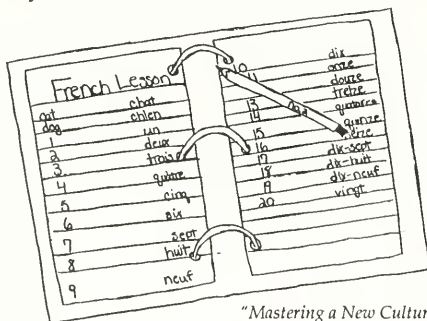 French Lesson
cat chat
dog chien
1 un
2 deux
3 trois
4 quatre
5 cinq
6 six
7 sept
8 huit
9 neuf
10 dix
11 onze
douze
13 treize
14 quatorze
15 quinze
16 seize
17 dix-sept
18 dix-huit
19 dix-neuf
20 vingt
"Mastering a New Cultur